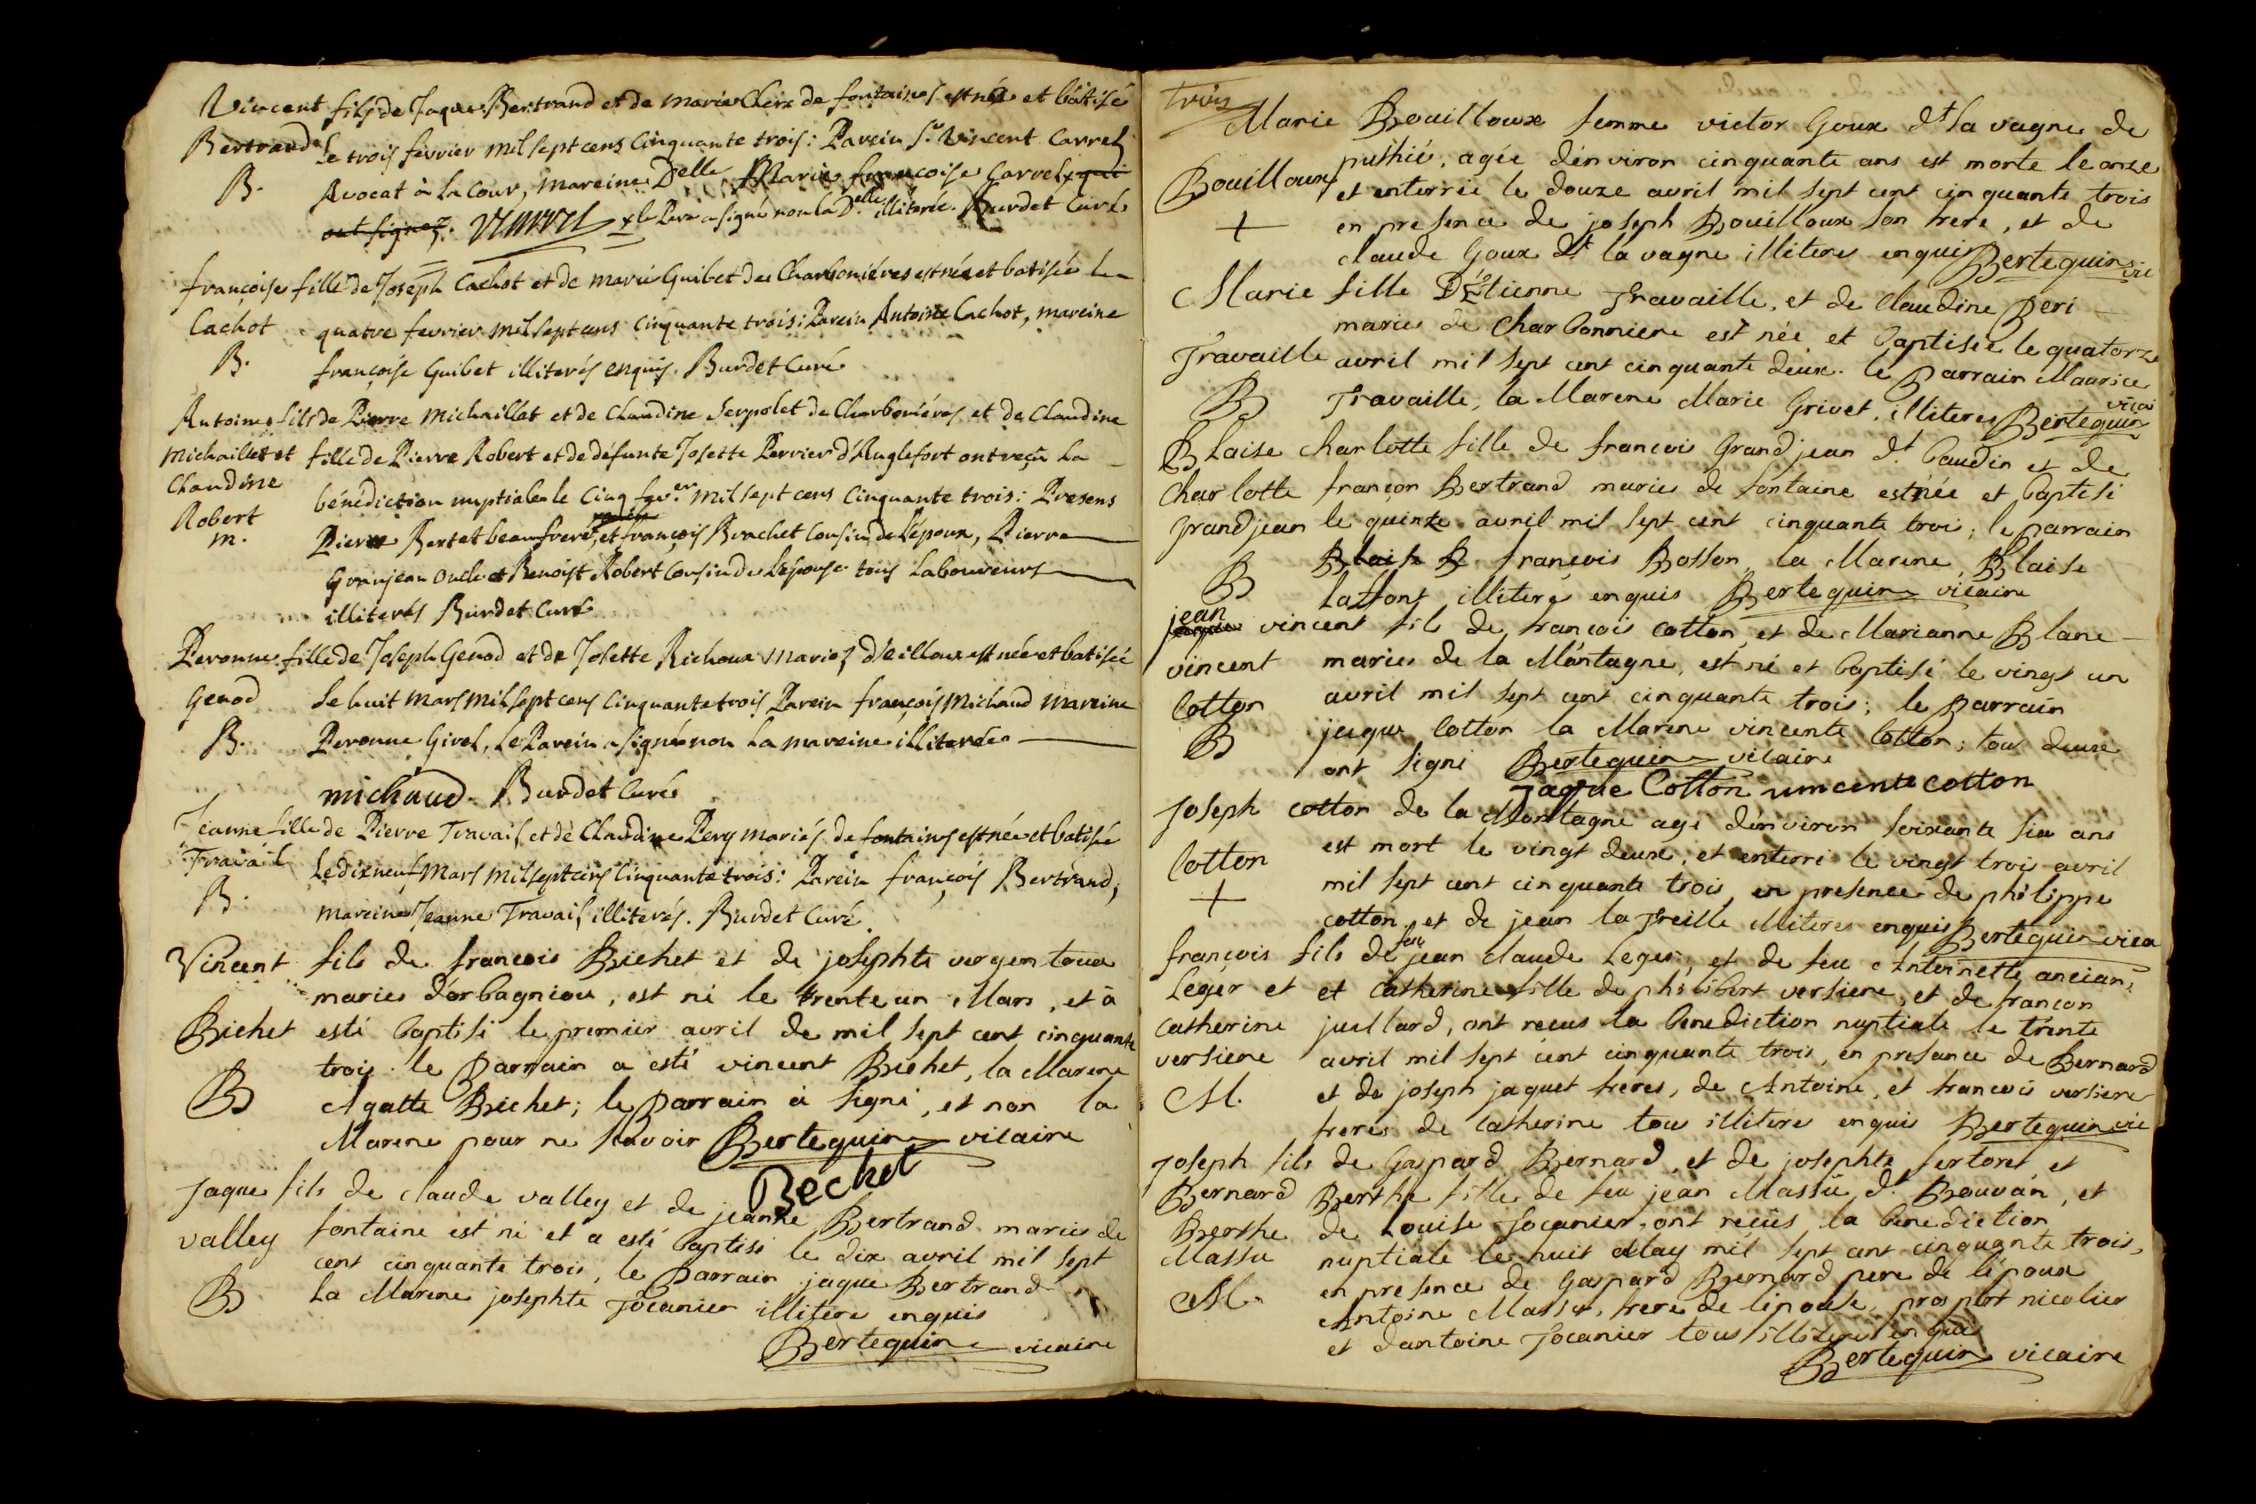 Vincent fils de Jaque Bertrand et de marie Clerc de fontaines est né et bâtisé
Bertrand le trois février mil sept cens cinquante trois: Parein Sr. Vincent Carrel
B. Avocat à la Cour, mareine Delle Marie françoise Carrel qui
ont signez. x le Parein a signé non la Delle illiterée. Burdet Curé
françoise fille de Joseph Cachot et de marie Guibet des Charboniéres est née et batisée le
Cachot quatre fevrier mil sept cens cinquante trois: Parein Antoine Cachot, mareine
B. françoise Guibet illiterés enquis. Burdet Curé
Antoine fils de Pierre Michaillet et de Claudine Serpolet de Charboniéres et de Claudine
Michaillet et fille de Pierre Robert et de défunte Josette Pervier d'Anglefort ont reçu la
Claudine bénédiction nuptiale le cinq fevr.er mil sept cens cinquante trois: Presens
Robert
m. Pierre Bertet beaufrere, et françois Brachet Cousin de L'époux, Pierre
Granjean oncle et Benoist Robert Cousin de L'épouse tous Laboureurs
illiterés Burdet Curé
Peronne fille de Joseph Genod et de Josette Richoux mariez d'eilloux est née et batisée
Genod le huit Mars mil sept cens cinquante trois Parein françois Michaud mareine
B. Peronne Givel, Le Parein a signé non la mareine illiterée
michaud. Burdet Curé
Jeanne fille de Pierre Travail et de Claudine Pery mariés de fontaines est née et batisée
Travail le dix neuf Mars mil sept cens cinquante trois: Parein françois Bertrand,
B. mareine Jeanne Travail illiterés. Burdet Curé.
Vincent fils de francois Bichet et de josephte vergentoux
maries d'orbagnieu, est né le trente un Mars, et à
Bichet esté baptisé le premier avril de mil sept cent cinquante
trois le Parrain a esté vincent Bichet, la Marene
B Agatte Bichet; le Parrain à signé, et non la
Marene pour ne scavoir Bertequin vicaire
Bechet
Jaque fils de claude valley et de jeanne Bertrand maries de
valley fontaine est né et a esté baptisé le dix avril mil sept
cent cinquante trois, le Parrain jaque Bertrand
B la Marene josephte Jocanier illitere enquis
Bertequin vicaire
trois
Marie Bouilloux femme victor Goux dt la vagne de
puthié, agée d'environ cinquante ans est morte le onze
Bouilloux et enterrée le douze avril mil sept cent cinquante trois
+ en presence de joseph Bouilloux son frere, et de
claude Goux dt la vagne illiteres enquis Bertequin vic
Marie fille D'Étienne Travaille, et de claudine Peri
maries de charbonniere est née et baptisée le quatorze
Travaille avril mil sept cent cinquante deux. le Parrain Maurice
B Travaille, la Marene Marie Grivet, illiteres Bertequin vicai
Blaise charlotte fille de francois Grandjean dt. baudin et de
charlotte françon Bertrand maries de fontaine est née et baptisé
grandjean le quinze avril mil sept cent cinquante trois; le parrain
B Blaise B françois Bosson, la Marene Blaise
Laffont illiterés enquis Bertequin vicaire
jean
jaque vincent fils de françois cotton et de Marianne Blanc
vincent maries de la Montagne, est né et baptisé le vingt un
Cotton avril mil sept cent cinquante trois; le Parrain
B jaque Cotton la Marene vincente Cotton; tous deux
ont signé Bertequin vicaire
jaque Cotton vincente cotton
Joseph cotton de la Montagne agé d'environ soixante six ans
Cotton est mort le vingt deux; et enterré le vingt trois avril
+ mil sept cent cinquante trois, en presence de philippe
cotton, et de jean la Treille illiteres enquis Bertequin vica
françois fils de feu jean claude Leger, et de feu Antoinette ancian,
Leger et et catherine fille de philibert versiere, et de françon
catherine juillard, ont recus la benediction nuptiale le trente
versiere avril mil sept cent cinquante trois, en presance de Bernard
M. et de joseph jaquet freres, de Antoine, et francois versiere
freres de Catherine tous illiteres enquis Bertequin vic
Joseph fils de Gaspard Bernard, et de josephte fertoret et
Bernard Berthe fille de feu jean Massu, dt. Bouvan, et
Berthe de Louise Jocanier, ont recûs la benediction
Massu nuptiale le huit May mil sept cent cinquante trois,
M. en presence de Gaspard Bernard pere de l'époux
Antoine Massu, frere de l'épouse, prospert nicolier
et d'antoine Jocanier tous illiteres enquis
Bertequin vicaire